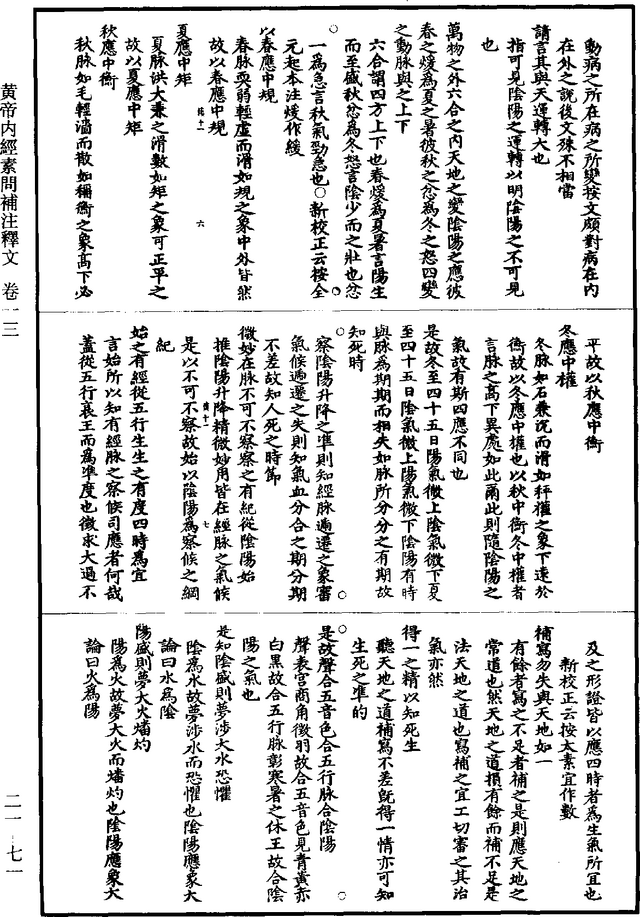 黄帝内經素問補注釋文　卷一三
二一—七一
動病之所在病之所變按文頗對病在内
在外之說後文殊不相當
請言其與天運轉大也
指可見陰陽之運轉以明陰陽之不可見
也
萬物之外六合之内天地之變陰陽之應彼
春之煖為夏之暑彼秋之忿為冬之怒四變
之動脉與之上下
六合謂四方上下也春煖為夏暑言陽生
而至盛秋忿為冬怒言陰少而之壯也忿
一為急言秋氣勁急也○新校正云按全
元起本注煖作緩
以春應中規
春脉耎弱輕虚而滑如規之象中外皆然
故以春應中規
夏應中矩
夏脉洪大兼之滑數如矩之象可正平之
故以夏應中矩
秋應中衡
秋脉如毛輕濇而散如稱衡之象高下必
平故以秋應中衡
冬應中權
冬脉如石兼沉而滑如秤權之象下遠於
衡故以冬應中權也以秋中衡冬中權者
言脉之高下異處如此爾此則隨陰陽之
氣故有斯四應不同也
是故冬至四十五日陽氣微上陰氣微下夏
至四十五日陰氣微上陽氣微下陰陽有時
與脉為期期而相失如脉所分分之有期故
知死時
察陰陽升降之準則知經脉遞遷之象審
氣候遞遷之失則知氣血分合之期分期
不差故知人死之時節
微妙在脉不可不察察之有紀從陰陽始
推陰陽升降精微妙用皆在經脉之氣候
是以不可不察故始以陰陽為察候之綱
紀
始之有經從五行生生之有度四時為宜
言始所以知有經脉之察候司應者何哉
蓋從五行衰王而為準度也徵求大過不
及之形證皆以應四時者為生氣所宜也
新校正云按太素宜作數
補寫勿失與天地如一
有餘者寫之不足者補之是則應天地之
常道也然天地之道損有餘而補不足是
法天地之道也寫補之宜工切審之其治
氣亦然
得一之精以知死生
聽天地之道補寫不差旣得一情亦可知
生死之準的
是故聲合五音色合五行脉合陰陽
聲表宫商角徵羽故合五音色見青黄赤
白黑故合五行脉彰寒暑之休王故合陰
陽之氣也
是知陰盛則夢涉大水恐懼
陰為水故夢涉水而恐懼也陰陽應象大
論曰水為陰
陽盛則夢大火燔灼
陽為火故夢大火而燔灼也陰陽應象大
論曰火為陽